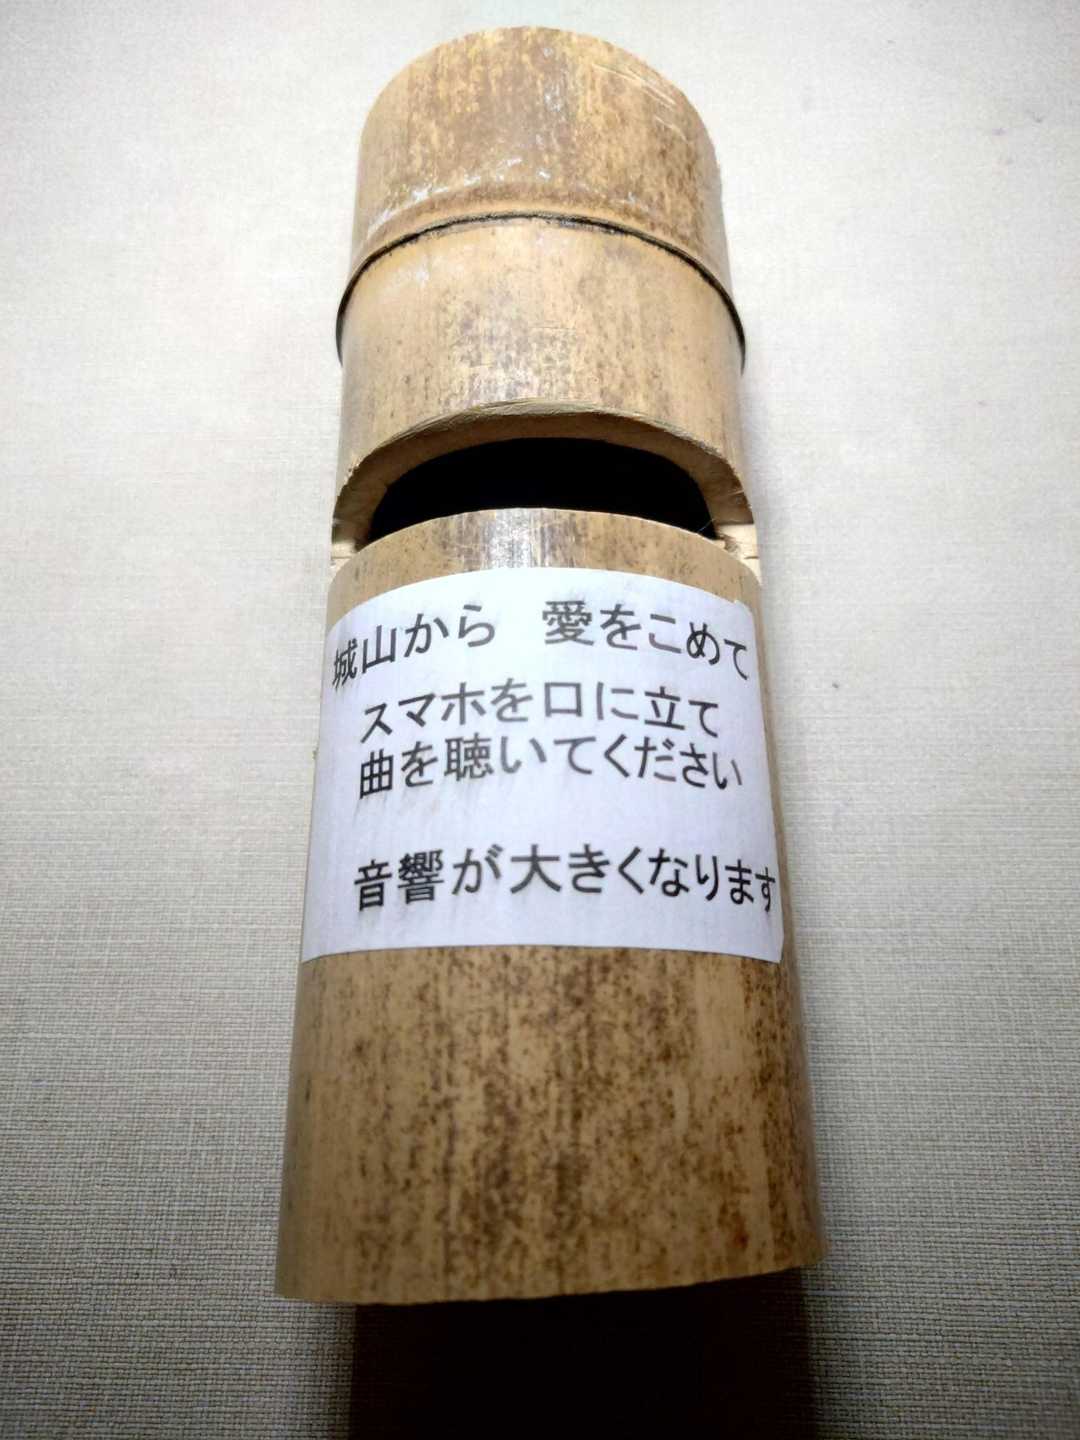 城山から　愛をこめて
スマホを口に立て
曲を聴いてください
音響が大きくなります